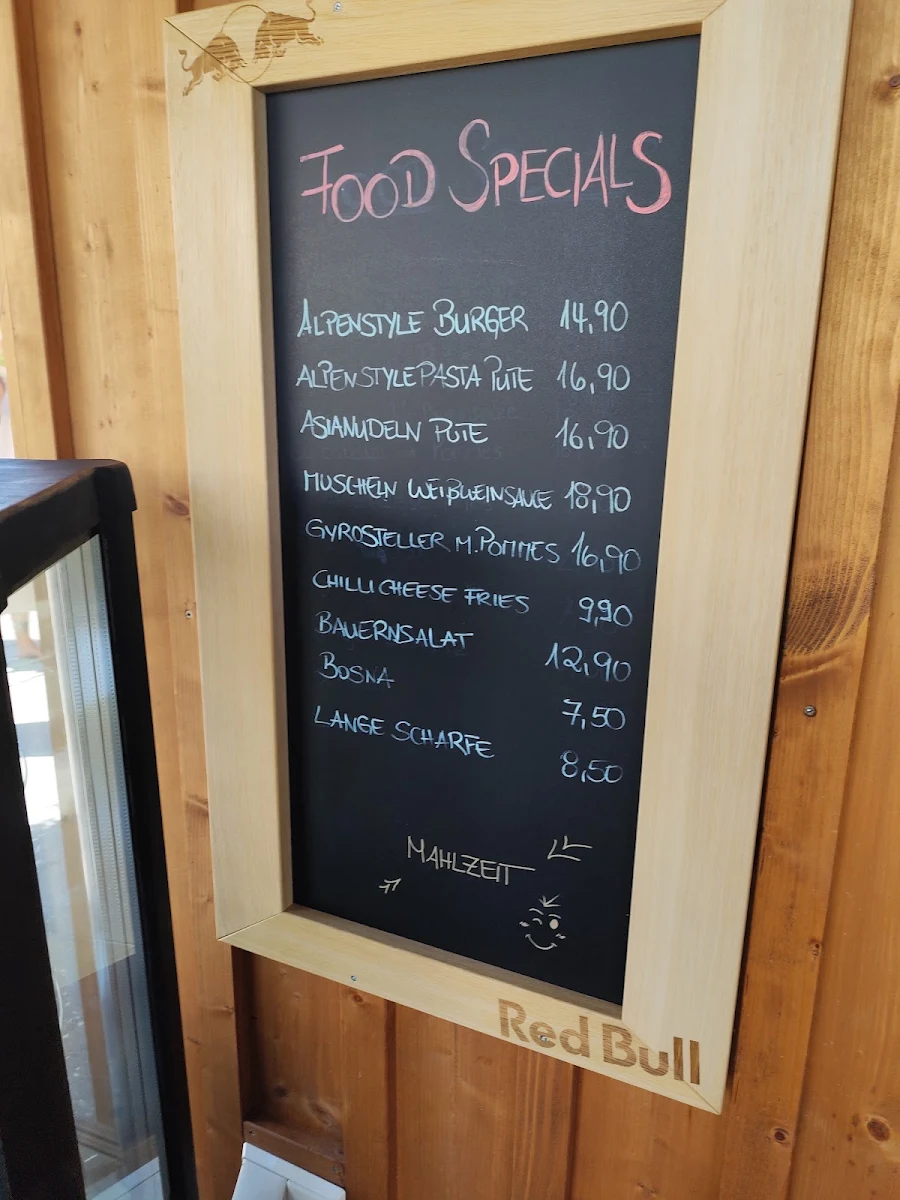 FOOD SPECIALS
ALPENSTYLE BURGER 14,90
ALPENSTYLEPASTA PUTE 16,90
ASIANUDELN PUTE 16,90
MUSCHELN WEIßWEINSAUCE 18,90
GYROSTELLER M. POMMES 16,90
CHILLI CHEESE FRIES 9,90
BAUERNSALAT 12,90
BOSNA 7,50
LANGE SCHARFE 8,50
MAHLZEIT
Red Bull